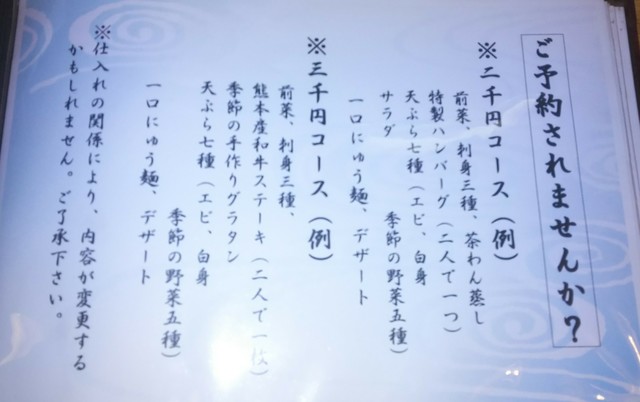 ご予約されませんか?
※二千円コース(例)
前菜、刺身三種、茶わん蒸し
特製ハンバーグ(二人で一つ)
天ぷら七種(エビ、白身
季節の野菜五種)
サラダ
一口にゅう麺、デザート
※三千円コース(例)
前菜、刺身三種、
熊本産和牛ステーキ(二人で一枚)
季節の手作りグラタン
天ぷら七種(エビ、白身
季節の野菜五種)
一口にゅう麺、デザート
※仕入れの関係により、内容が変更する
かもしれません。ご了承下さい。